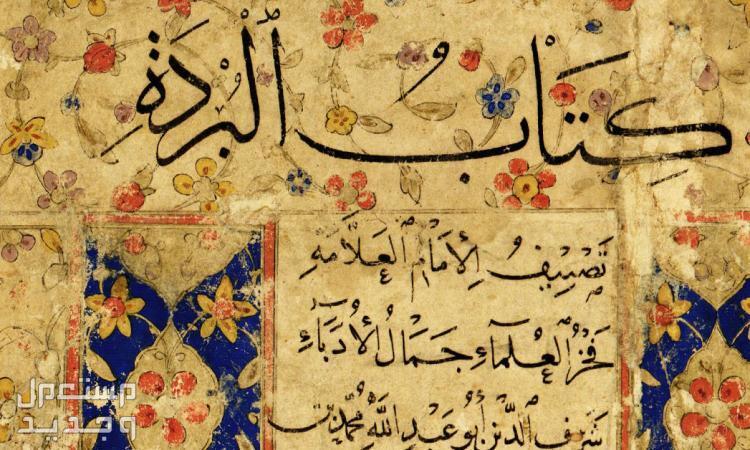 كِتَابُ الْبُرْدَةِ
تَصْنِيفُ الْإِمَامِ الْعَلَّامَهِ
فَخْرُ الْعُلَمَاءِ جَمَالُ الْأُدَبَاءِ
شَرِيفِ الدِّينِ أَبُو عَبْدِ اللَّهِ مُحَمَّدِ بْنِ
مستعمل
وجديد